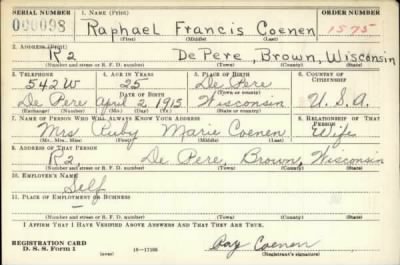 SERIAL NUMBER 1. NAME (Print) ORDER NUMBER
000098 Raphael Francis Coenen 1575
(First) (Middle) (Last)
2. ADDRESS (Print)
R2 De Pere, Brown, Wisconsin
(Number and street or R. F. D. number) (Town) (County) (State)
3. TELEPHONE 4. AGE IN YEARS 5. PLACE OF BIRTH 6. COUNTRY OF CITIZENSHIP
542W 25 De Pere
DATE OF BIRTH (Town or county)
De Pere April 2, 1915 Wisconsin U.S.A.
(Exchange) (Number) (Mo.) (Day) (Yr.) (State or country)
7. NAME OF PERSON WHO WILL ALWAYS KNOW YOUR ADDRESS 8. RELATIONSHIP OF THAT PERSON
Mrs Ruby Marie Coenen Wife
(Mr., Mrs., Miss) (First) (Middle) (Last)
9. ADDRESS OF THAT PERSON
R2 De Pere, Brown, Wisconsin
(Number and street or R. F. D. number) (Town) (County) (State)
10. EMPLOYER'S NAME
Self
11. PLACE OF EMPLOYMENT OR BUSINESS
(Number and street or R. F. D. number) (Town) (County) (State)
I AFFIRM THAT I HAVE VERIFIED ABOVE ANSWERS AND THAT THEY ARE TRUE.
REGISTRATION CARD Ray Coenen
D. S. S. FORM 1 (over) 16-17105 (Registrant's signature)